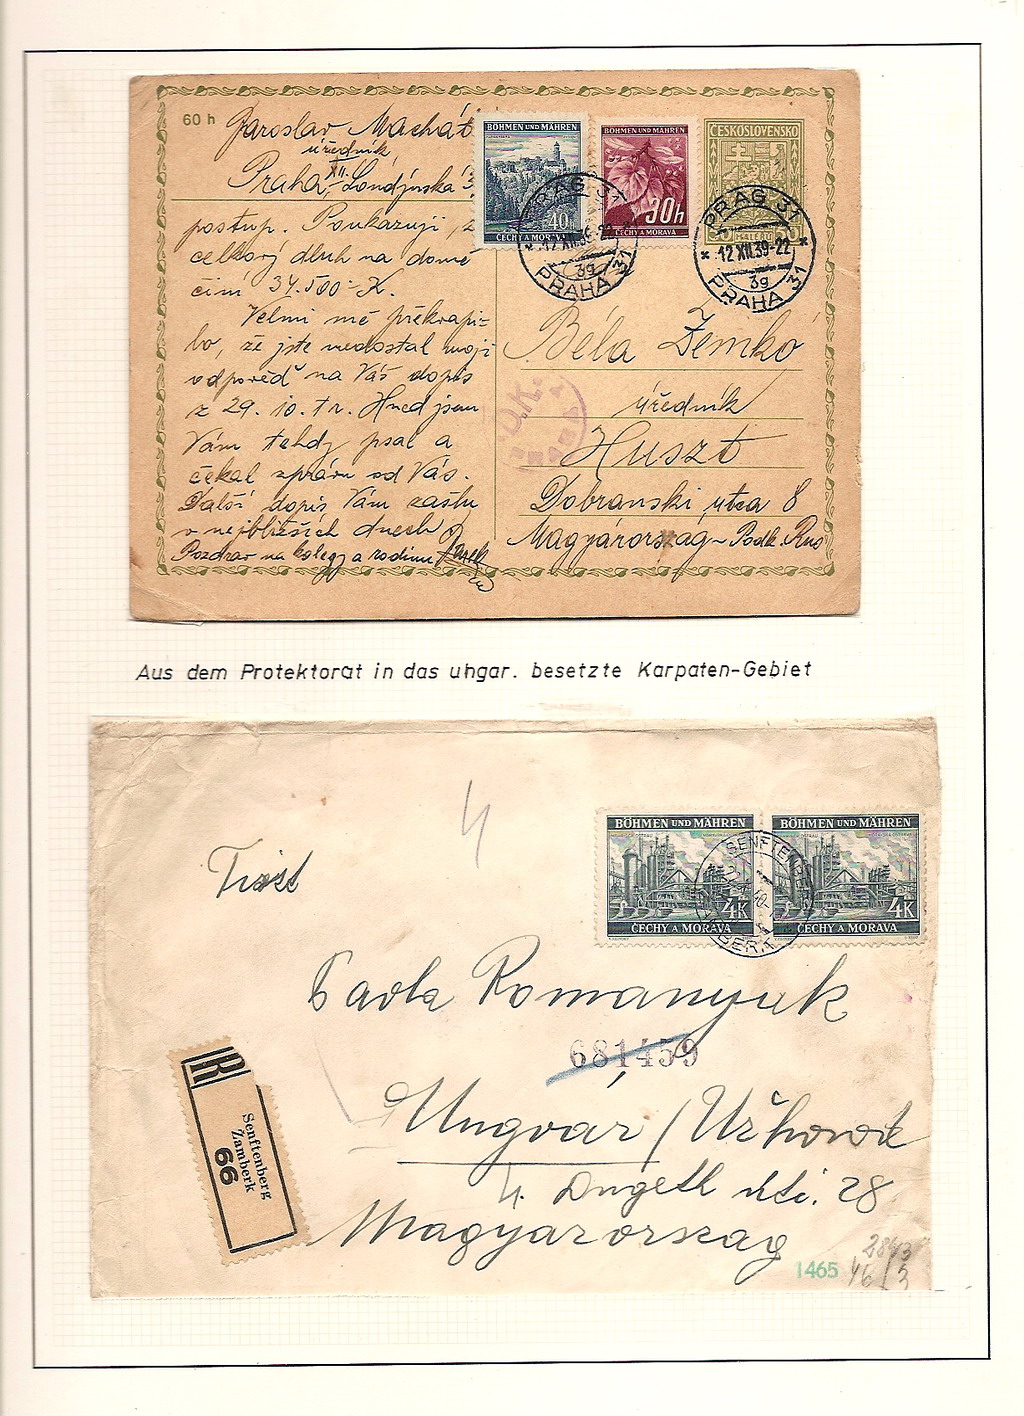 60 h
Jaroslav Machát
úředník
Praha XII. Londýnská
postup. Poukazuji, z
celkový dluh na domě
činí 34.500 K.
Velmi mě překvapi-
lo, že jste nedostal moji
odpověď na Váš dopis
z 29. 10. t.r. Hned jsem
Vám tehdy psal a
čekal zprávu od Vás.
Další dopis Vám zašlu
v nejbližších dnech
Pozdrav na kolegy a rodinu
BÖHMEN UND MÄHREN
40h
ČECHY A MORAVA
BÖHMEN UND MÄHREN
30h
ČESKOSLOVENSKO
50 HALÉŘŮ 50
PRAG 31
12 XII.39-22
3g
PRAHA 31
PRAG 31
12 XII.39-22
3g
PRAHA 31
Béla Zemko
úředník
Huszt
Dobranski utca 8
Magyárország - Podk. Rus
Aus dem Protektorat in das uhgar. besetzte Karpaten-Gebiet
4
BÖHMEN UND MÄHREN
4K
ČECHY A MORAVA
BÖHMEN UND MÄHREN
4K
ČECHY A MORAVA
SENFTENBERG
Pavla Romanyuk
681459
Ungvár / Užhorod
28
Magyarorszag
R
Senftenberg
Žamberk
66
1465